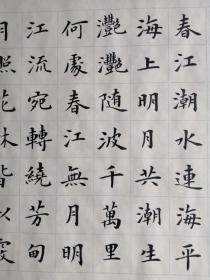 春江潮水連海平
海上明月共潮生
灧灧随波千萬里
何處春江無月明
江流宛轉繞芳甸
月照花林皆似霰